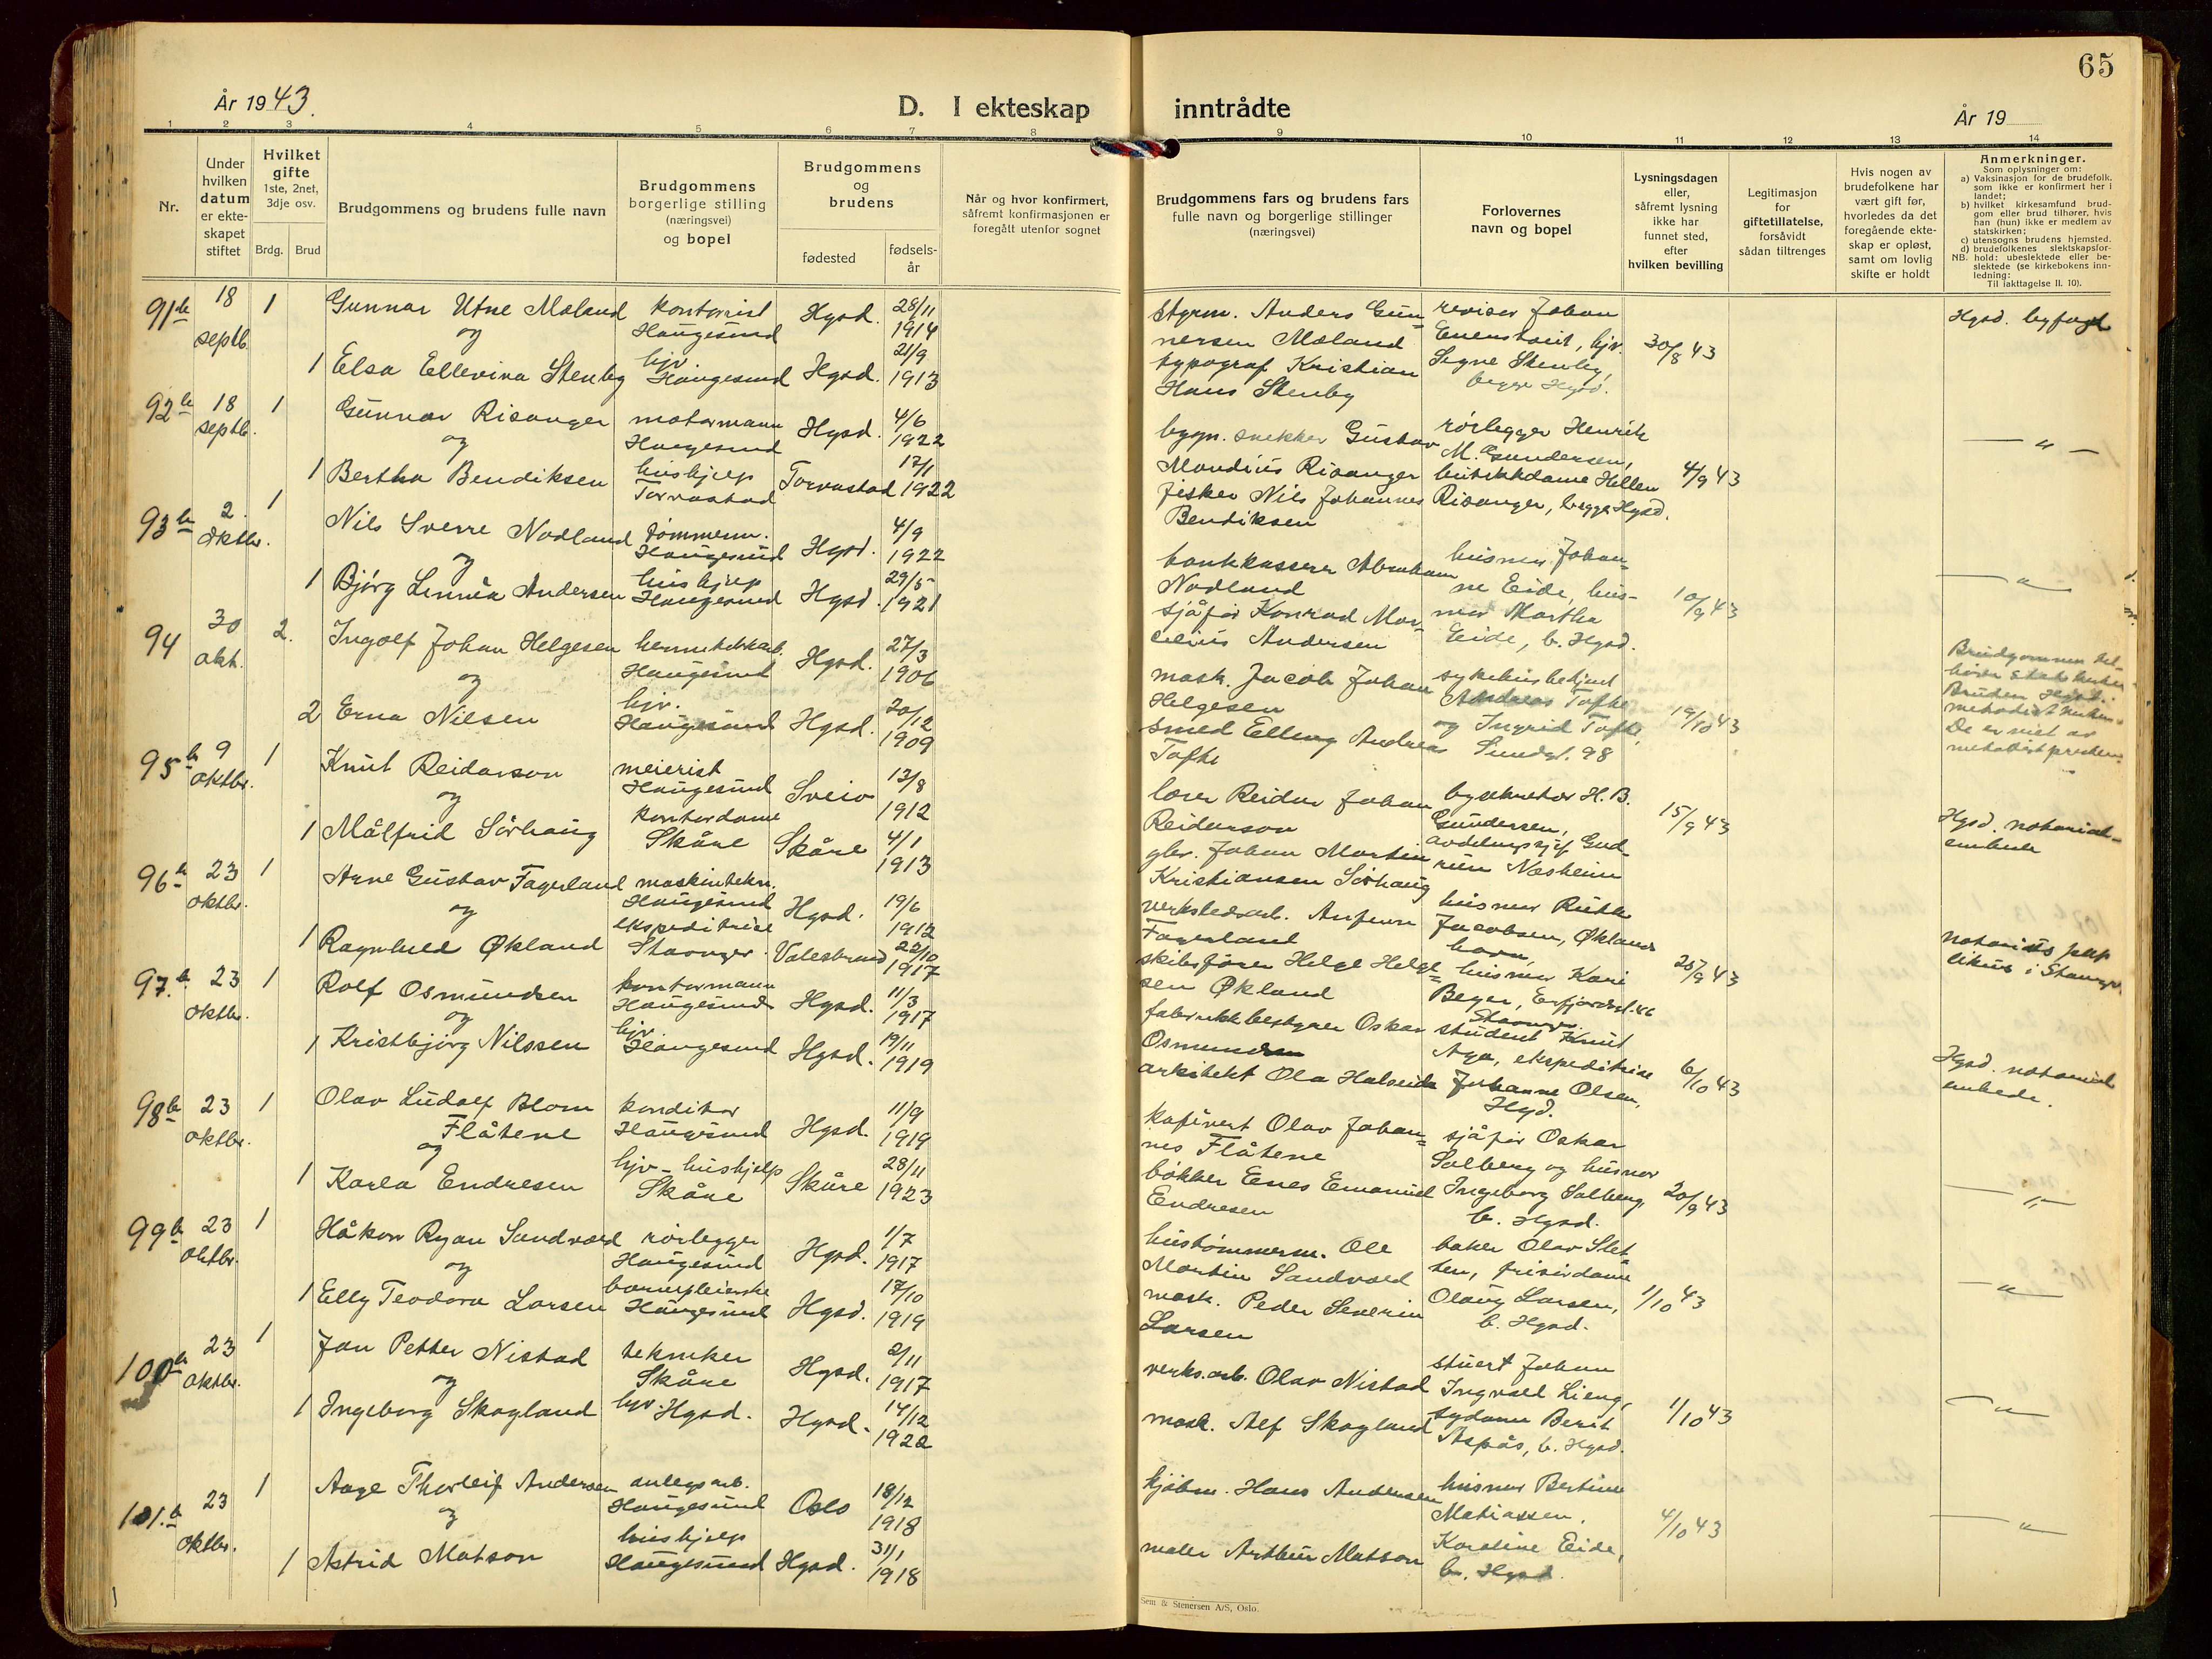 65
År 1943.
D. I ekteskap inntrådte
År 19
1 2 3 4 5 6 7 8 9 10 11 12 13 14
Nr.
Under hvilken datum er ekteskapet stiftet
Hvilket gifte 1ste, 2net, 3dje osv.
Brdg. Brud
Brudgommens og brudens fulle navn
Brudgommens borgerlige stilling (næringsvei) og bopel
Brudgommens og brudens
fødested
fødsels-år
Når og hvor konfirmert, såfremt konfirmasjonen er foregått utenfor sognet
Brudgommens fars og brudens fars fulle navn og borgerlige stillinger (næringsvei)
Forlovernes navn og bopel
Lysningsdagen eller, såfremt lysning ikke har funnet sted, efter hvilken bevilling
Legitimasjon for giftetillatelse, forsåvidt sådan tiltrenges
Hvis nogen av brudefolkene har vært gift før, hvorledes da det foregående ekteskap er opløst, samt om lovlig skifte er holdt
Anmerkninger.
Som oplysninger om:
a) Vaksinasjon for de brudefolk, som ikke er konfirmert her i landet;
b) hvilket kirkesamfund brudgom eller brud tilhører, hvis han (hun) ikke er medlem av statskirken;
c) utensogns brudens hjemsted.
d) brudefolkenes slektskapsforhold: ubeslektede eller beslektede (se kirkebokens innledning:
NB.
Til iakttagelse II. 10).
91 b 18 septb. 1 Gunnar Utne Mæland kontorist Haugesund Hgsd. 28/11 1914
og
1 Elsa Ellevina Stenby hjv. Haugesund Hgsd. 21/9 1913
styrm. Anders Gunnersen Mæland
typograf Kristian Hans Stenby
revisor Johan Enenstvit, hjv. Signe Stenby, begge Hgsd.
30/8 43
Hgsd. byfogd
92 b 18 septb. 1 Gunnar Risanger motormann Haugesund Hgsd. 4/6 1922
og
1 Bertha Bendiksen hushjelp Torvastad Torvastad 17/1 1922
bygn. snekker Gustav Mandius Risanger
fisker Nils Johannes Bendiksen
rørlegger Henrik M. Gundersen, butikkdame Hellen Risanger, begge Hgsd.
4/9 43
— " —
93 b 2. oktbr. 1 Nils Sverre Nodland tømmerm. Haugesund Hgsd. 4/9 1922
og
1 Bjørg Linnéa Andersen hushjelp Haugesund Hgsd. 29/5 1921
bankkasserer Abraham Nodland
sjåfør Konrad Marselius Andersen
husmor Johanne Eide, husmor Martha Eide, b. Hgsd.
10/9 43
— " —
94 30 okt. 2. Ingolf Johan Helgesen hermetikkarb. Haugesund Hgsd. 27/3 1906
og
2 Erna Nilsen hjv. Haugesund Hgsd. 20/12 1909
mask. Jacob Johan Helgesen
smed Elling Andreas Tofte
sykehusbetjent Andreas Tofte og Ingrid Tofte, Sundgt. 98
19/10 43
Brudgommen tilhører statskirken Bruden Hgsd. metodistkirken. De er viet av metodistpresten
95 b 9 oktbr. 1 Knut Reidarson meierist Haugesund Sveio 13/8 1912
og
1 Målfrid Sørhaug kontordame Skåre Skåre 4/1 1913
lærer Reidar Johan Reidarson
gbr. Johan Martin Kristiansen Sørhaug
bysekretær H. B. Gundersen, avdelingssjef Gudrun Næsheim
15/9 43
Hgsd. notarialembede
96 b 23 oktbr. 1 Arne Gustav Fagerland maskintekn. Haugesund Hgsd. 19/6 1912
og
1 Ragnhild Økland ekspeditrise Stavanger Valestrand 22/10 1917
verkstedsarb. Anfinn Fagerland
skibsfører Helge Helgesen Økland
husmor Ruth Jacobsen, Øklands havn, husmor Kari Beyer, Erfjordgt. 46 Stavanger.
25/9 43
notarius publikus i Stavanger
97. b 23 oktbr. 1 Rolf Osmundsen kontormann Haugesund Hgsd. 11/3 1917
og
1 Kristbjørg Nilssen hjv. Haugesund Hgsd. 19/11 1919
fabrikkbestyrer Oskar Osmundsen
arkitekt Ola Halseide
student Knut Aga, ekspeditrise Johanne Olsen, Hgsd.
6/10 43
Hgsd. notarialembede.
98 b 23 oktbr. 1 Olav Ludolf Blom Flåtene konditor Haugesund Hgsd. 11/9 1919
og
1 Karla Endresen hjv - hushjelp Skåre Skåre 28/11 1923
kafévert Olav Johannes Flåtene
bøkker Enes Emanuel Endresen
sjåfør Oskar Salberg og husmor Ingeborg Salberg, b. Hgsd.
20/9 43
— " —
99 b 23 oktbr. 1 Håkon Ryan Sandvold rørlegger Haugesund Hgsd. 1/7 1917
og
1 Elly Teodora Larsen barnepleierske Haugesund Hgsd. 17/10 1919
hustømmerm. Ole Martin Sandvold
mask. Peder Severin Larsen
baker Olav Sletten, frisørdame Olaug Larsen, b. Hgsd.
1/10 43
— " —
100 b 23 oktbr. 1 Jan Petter Nistad tekniker Skåre Hgsd. 2/11 1917
og
1 Ingeborg Skogland hjv. Hgsd. Hgsd. 14/12 1922
verks.arb. Olav Nistad
mask. Alf Skogland
stuert Johan Ingvald Lieng, sydame Berit Aspås, b. Hgsd.
1/10 43
— " —
101. b 23 oktbr. 1 Aage Thorleif Andersen anlegsarb. Haugesund Oslo 18/12 1918
og
1 Astrid Matson hushjelp Haugesund Hgsd. 31/1 1918
kjøbm. Hans Andersen
maler Arthur Matson
husmor Bertine Matiassen. Karoline Eide, b. Hgsd.
4/10 43
— " —
Sem & Stenersen A/S, Oslo.